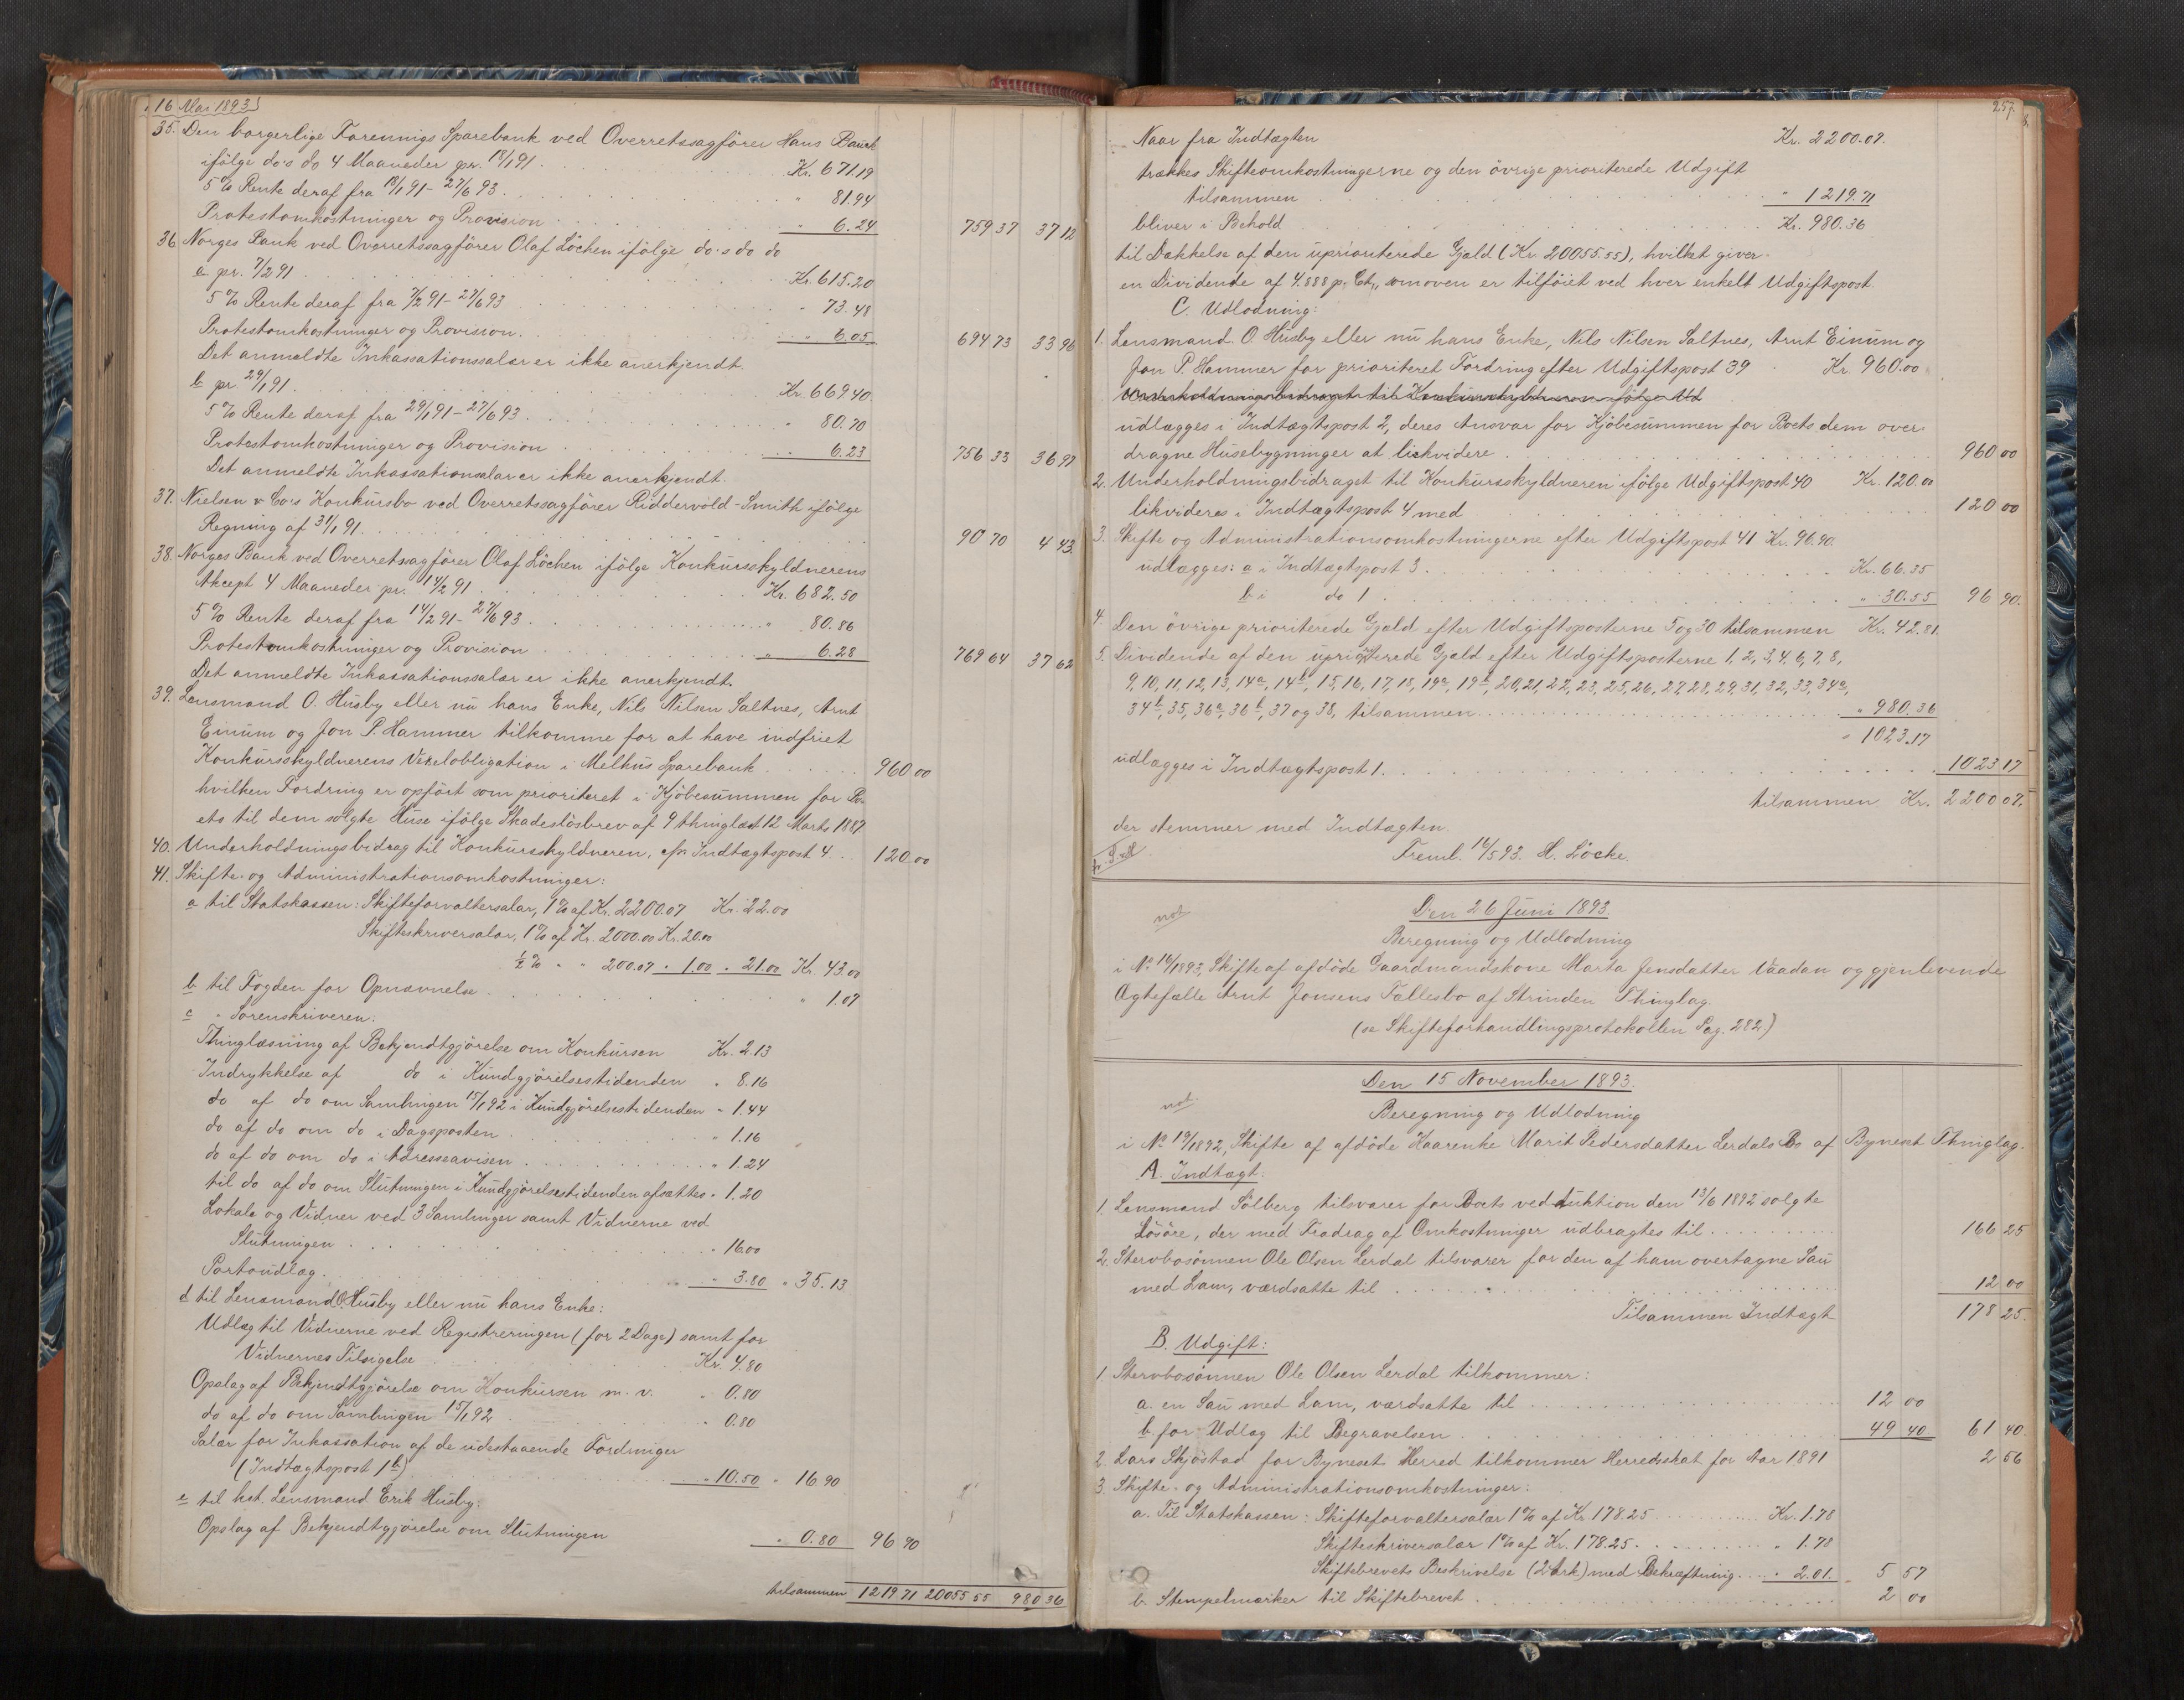 16 Mai 1893
35. Den borgerlige Forennigs Sparebank ved Overretssagfører Hans Bauck
ifølge do's do 4 Maaneder pr. 18/1 91 . Kr. 671.19
5 % Rente deraf fra 18/1 91 - 27/6 93 . " 81.94
Protestomkostninger og Provision . " 6.24 759 37 37 12
36 Norges Bank ved Overretssagfører Olaf Löchen ifølge do's do do
a pr. 7/2 91 . Kr. 615.20
5 % Rente deraf fra 7/2 91 - 27/6 93 " 73.48
Protestomkostninger og Provision. " 6.05 694 73 33 96
Det anmeldte Inkassationssalær er ikke anerkjendt.
b pr. 29/1 91 . Kr. 669 40.
5 % Rente deraf fra 29/1 91 - 27/6 93 . " 80.70
Protestomkostninger og Provision . " 6.23 756 33 36 97
Det anmeldte Inkassationsalær er ikke anerkjendt.
37. Nielsen & Co's Konkursbo ved Overretssagfører Riddervold-Smith ifølge
Regning af 31/1 91 . 90 70 4 43.
38. Norges Bank ved Overretssagfører Olaf Löchen ifølge Konkursskyldnerens
Akcept 4 Maaneder pr. 14/2 91 . Kr. 682.50
5 % Rente deraf fra 14/2 91 - 27/6 93 . " 80.86
Protestomkostninger og Provision . " 6.28 769 64 37 62
Det anmeldte Inkassationssalær er ikke anerkjendt.
39. Lensmand O. Husby eller nu hans Enke, Nils Nilsen Saltnes, Arnt
Einum og Jon P. Hammer tilkomme for at have indfriet
Konkursskyldnerens Vexelobligation i Melhus Sparebank . 960 00
hvilken Fordring er opført som prioriteret i Kjøbesummen for Bo-
ets til dem solgte Huse ifølge Skadesløsbrev af 9 thinglæst 12 Marts 1887
40. Underholdningsbidrag til Konkursskyldneren, cfr. Indtægtspost 4 . . 120.00
41. Skifte- og Administrationsomkostninger:
a til Statskassen: Skifteforvaltersalær, 1 % af Kr. 2200.07 Kr. 22.00
Skifteskriversalær, 1 % af Kr. 2000.00 Kr. 20.00
1/2 % " " 200.07 " 1.00 " 21.00 Kr. 43.00
b. til Fogden for Opnævnelse . " 1.07
c " Sorenskriveren:
Thinglæsning af Bekjendtgjørelse om Konkursen Kr. 2.13
Indrykkelse af do i Kundgjørelsestidenden " 8.16
do af do om Samlingen 15/1 92 i Kundgjørelsestidenden " 1.44
do af do om do i Dagsposten . " 1.16
do af do om do i Adresseavisen . " 1.24
til do af do om Slutningen i Kundgjørelsestidenden afsættes " 1.20
Lokale og Vidner ved 3 Samlinger samt Vidnerne ved
Slutningen . " 16.00
Portoudlæg . " 3.80 " 35.13
d til Lensmand O. Husby eller nu hans Enke:
Udlæg til Vidnerne ved Registreringen (for 2 Dage) samt for
Vidnernes Tilsigelse Kr. 4.80
Opslag af Bekjendtgjørelse om Konkursen m. v. " 0.80
do af do om Samlingen 15/1 92 . " 0.80
Salær for Inkassation af de udestaaende Fordringer
(Indtægtspost 1 b) " 10.50 " 16.90
e til kst. Lensmand Erik Husby:
Opslag af Bekjendtgjørelse om Slutningen " 0.80 96 90
tilsammen 1219 71 20055 55 980 36
257.
Naar fra Indtægten Kr. 2200.07.
trækkes Skifteomkostningerne og den øvrige prioriterede Udgift
tilsammen . " 1219.71
bliver i Behold . Kr. 980.36
til Dækkelse af den uprioriterede Gjæld (Kr. 20055.55), hvilket giver
en Dividende af 4.888 p. Ct., som oven er tilføiet ved hver enkelt Udgiftspost.
C. Udlodning:
1. Lensmand O. Husby eller nu hans Enke, Nils Nilsen Saltnes, Arnt Einum og
Jon P. Hammer for prioriteret Fordring efter Udgiftspost 39 Kr. 960.00
Underholdningsbidraget til Konkursskyldneren ifølge Ud
udlægges i Indtægtspost 2, deres Ansvar for Kjøbesummen for Boets dem over-
dragne Husebygninger at likvidere . 960 00
2. Underholdningsbidraget til Konkursskyldneren ifølge Udgiftspost 40 Kr. 120.00
likvideres i Indtægtspost 4 med 120 00
3. Skifte og Administrationsomkostningerne efter Udgiftspost 41 Kr. 96.90.
udlægges: a i Indtægtspost 3 . Kr. 66.35
b i do 1 . " 30.55 96 90.
4. Den øvrige prioriterede Gjæld efter Udgiftsposterne 5 og 30 tilsammen Kr. 42.81.
5. Dividende af den uprioriterede Gjæld efter Udgiftsposterne 1, 2, 3, 4, 6, 7, 8,
9, 10, 11, 12, 13, 14a, 14b, 15, 16, 17, 18, 19a, 19b, 20, 21, 22, 23, 25, 26, 27, 28, 29, 31, 32, 33, 34a,
34b, 35, 36a, 36b, 37 og 38, tilsammen . " 980.36
" 1023.17
udlægges i Indtægtspost 1. 1023 17
tilsammen Kr. 2200 07.
der stemmer med Indtægten.
Freml. 16/5 93. H. Löcke.
not.
Den 26 Juni 1893.
Beregning og Udlodning
i No 16/1893, Skifte af afdøde Gaardmandskone Marta Jensdatter Vaadan og gjenlevende
Ægtefælle Arnt Jonsens Fællesbo af Strinden Thinglag.
(se Skifteforhandlingsprotokollen Pag. 282.)
Den 15 November 1893.
not.
Beregning og Udlodning
i No 19/1892, Skifte af afdøde Kaarenke Marit Pedersdatter Lerdals Bo af Bynesset Thinglag.
A. Indtægt:
1. Lensmand Solberg tilsvarer for Boets ved Auktion den 13/6 1892 solgte
Løsøre, der med Fradrag af Omkostninger udbragtes til . 166 25
2. Stervbosønnen Ole Olsen Lerdal tilsvarer for den af ham overtagne Sau
med Lam, værdsatte til . 12 00
Tilsammen Indtægt 178 25.
B. Udgift:
1. Stervbosønnen Ole Olsen Lerdal tilkommer:
a. en Sau med Lam, værdsatte til . 12 00
b. for Udlæg til Begravelsen . 49 40 61 40.
2. Lars Skjøstad for Bynesset Herred tilkommer Herredsskat for Aar 1891 2 56
3. Skifte- og Administrationsomkostninger:
a. Til Statskassen: Skifteforvaltersalær 1 % af Kr. 178.25 . Kr. 1.78
Skifteskriversalær 1 % af Kr. 178.25 . " 1.78
Skiftebrevets Beskrivelse (2 Ark) med Bekræftning . " 2.01. 5 57
b. Stempelmærker til Skiftebrevet . 2 00